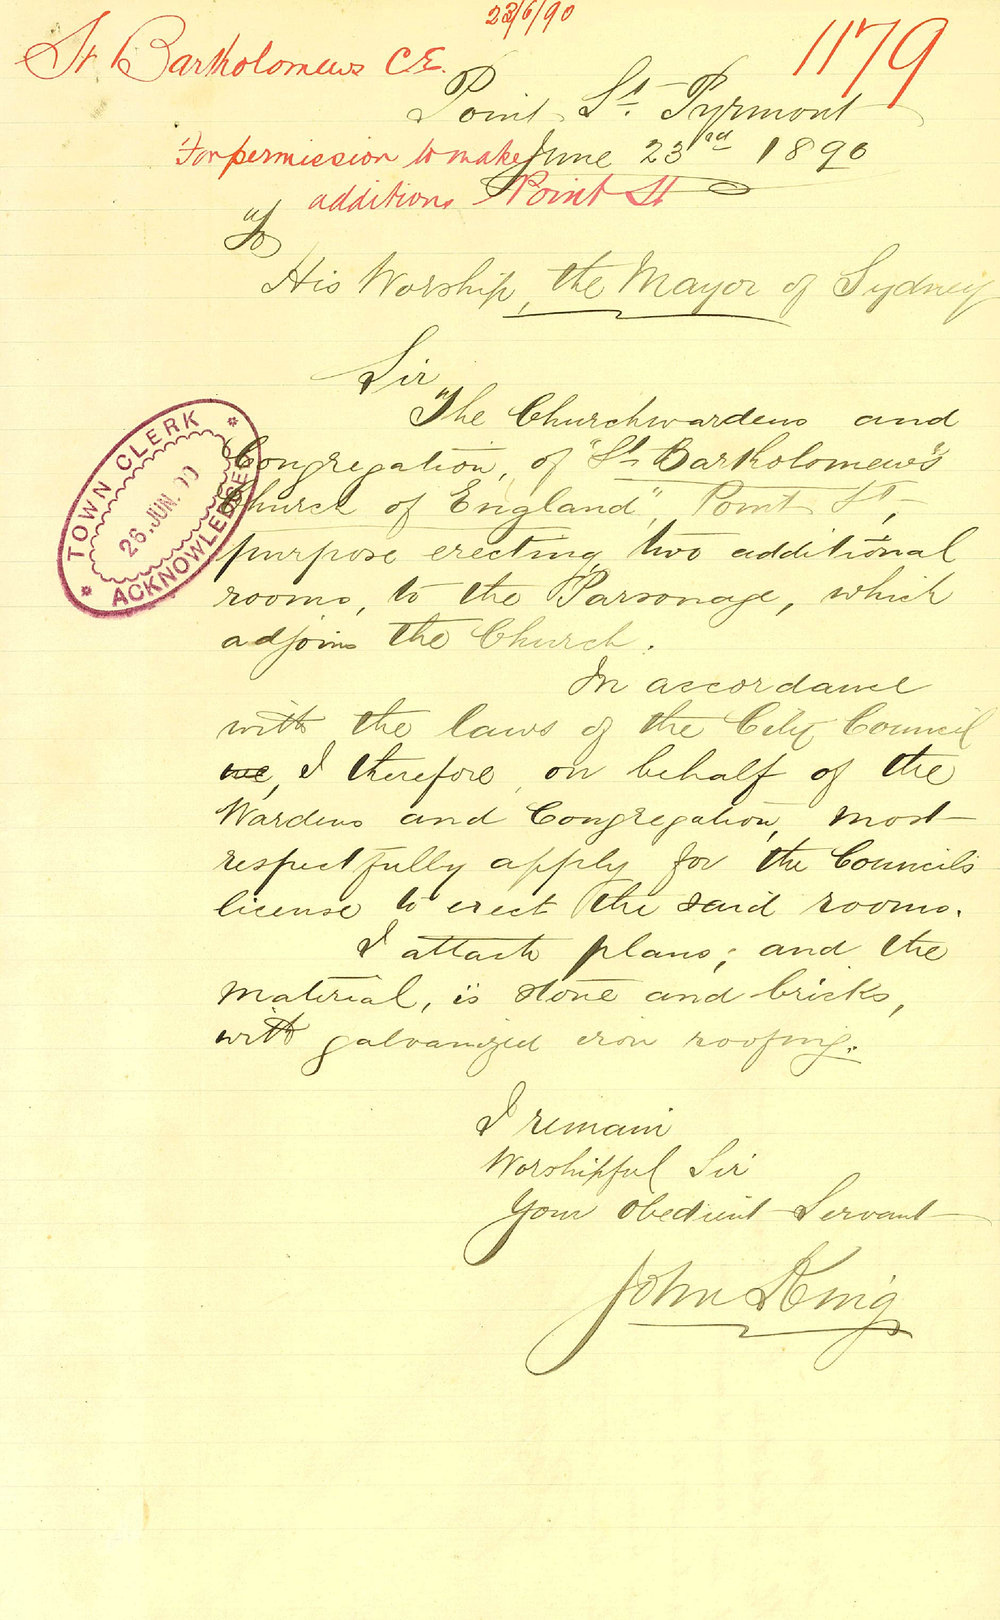 23/6/90
St Bartholomews C.E.
1179
Point St. Pyrmont
For permission to make
June 23rd 1890
additions Point St
To
His Worship, the Mayor of Sydney
Sir
The Churchwardens and
Congregation, of "St. Bartholomew's
Church of England," Point St.,
purpose erecting two additional
rooms, to the Parsonage, which
adjoins the Church.
In accordance
with the laws of the City Council
we, I therefore, on behalf of the
Wardens and Congregation, most
respectfully apply for the Councils
license to erect the said rooms.
I attach plans; and the
material, is stone and bricks,
with galvanized iron roofing.
I remain
Worshipful Sir
Your obedient Servant
John King
TOWN CLERK
26. JUN. 90
ACKNOWLEDGED